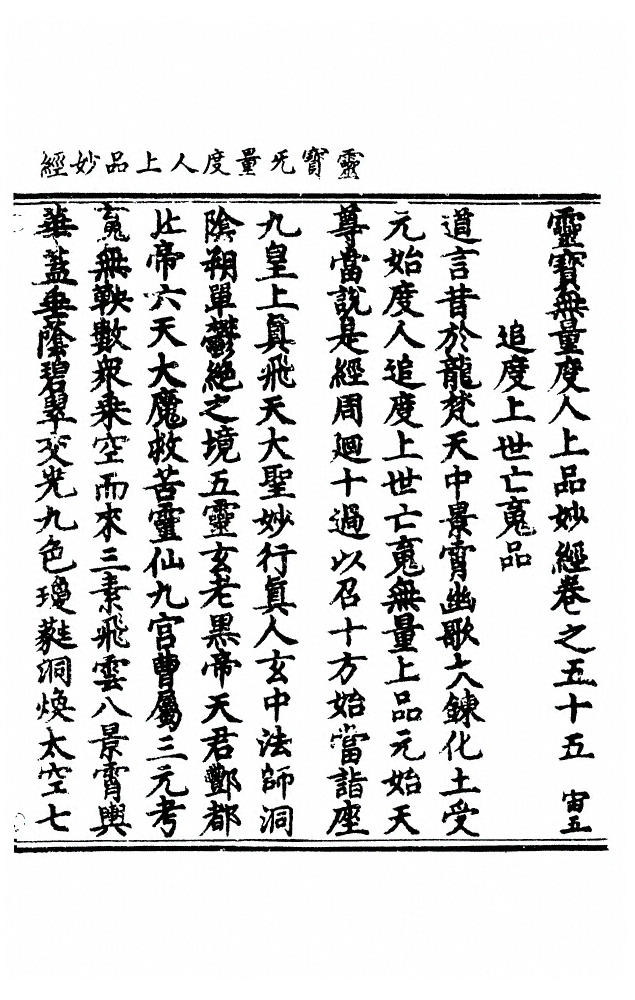 靈寶无量度人上品妙經
靈寶無量度人上品妙經卷之五十五 宙五
追度上世亡䰟品
道言昔於龍梵天中景霄幽歌大鍊化土受
元始度人追度上世亡䰟無量上品元始天
尊當說是經周迴十過以召十方始當詣座
九皇上眞飛天大聖妙行眞人玄中法師洞
陰朔單鬱絕之境五靈玄老黑帝天君酆都
北帝六天大魔救苦靈仙九官曹屬三元考
䰟無鞅數衆乘空而來三素飛雲八景霄輿
華蓋垂蔭碧翠交光九色瓊蕤洞煥太空七